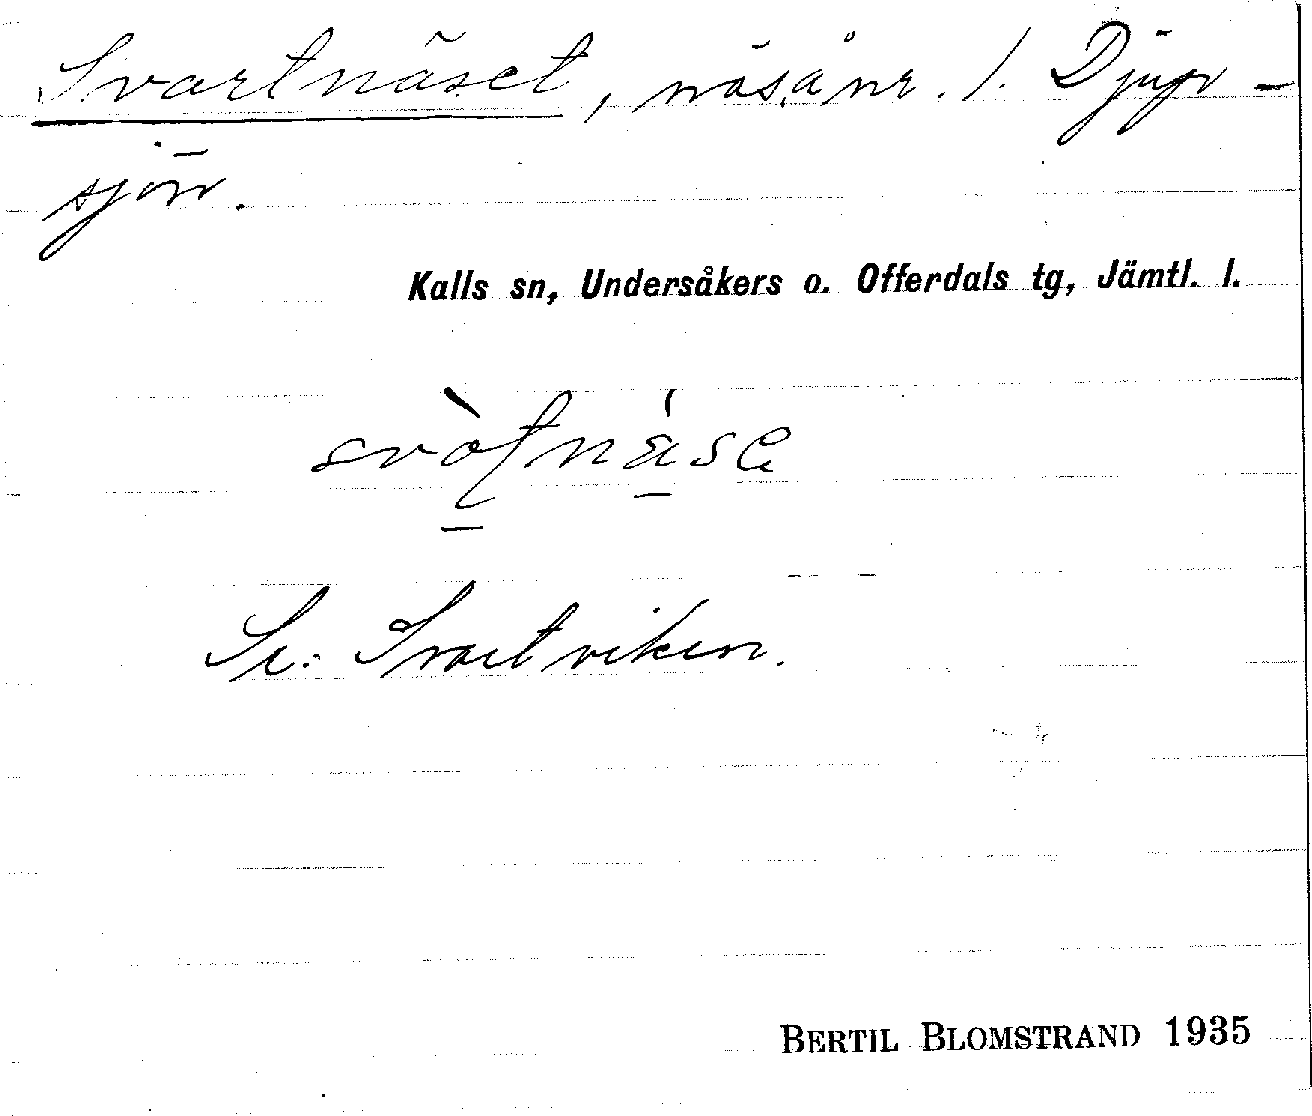 Svartnäset, näs, å nr. 1. Djup-
sjön.
Kalls sn, Undersåkers o. Offerdals tg, Jämtl. l.
Se: Svartviken.
BERTIL BLOMSTRAND 1935